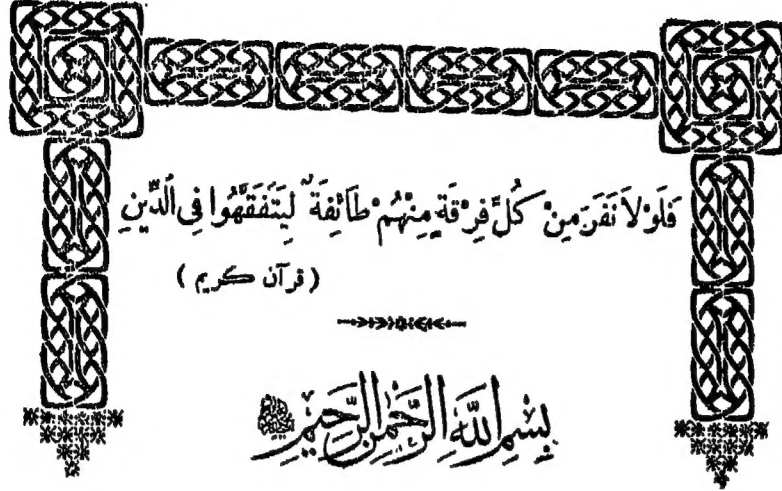 فَلَوْلَا نَفَرَ مِنْ كُلِّ فِرْقَةٍ مِنْهُمْ طَائِفَةٌ لِيَتَفَقَّهُوا فِي الدِّينِ
( قرآن كريم )
بِسْمِ اللَّهِ الرَّحْمٰنِ الرَّحِيمِ